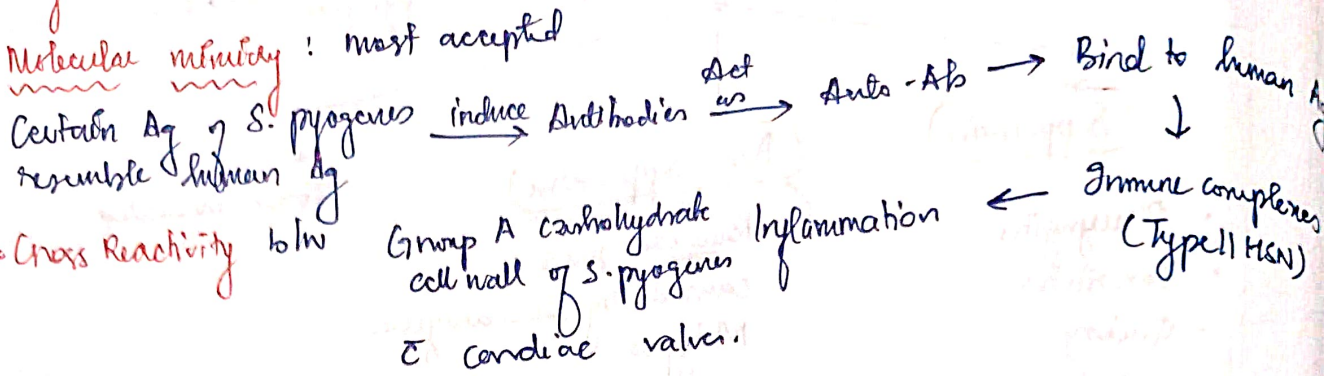 Molecular mimicry : most accepted
Certain Ag of S. pyogenes resemble human Ag induce → Antibodies Act as → Auto-Ab → Bind to human Ag
↓
Immune complexes (Type II HSN)
← Inflammation
Cross Reactivity b/w Group A carbohydrate
cell wall of S. pyogenes
c̄ cardiac valves.